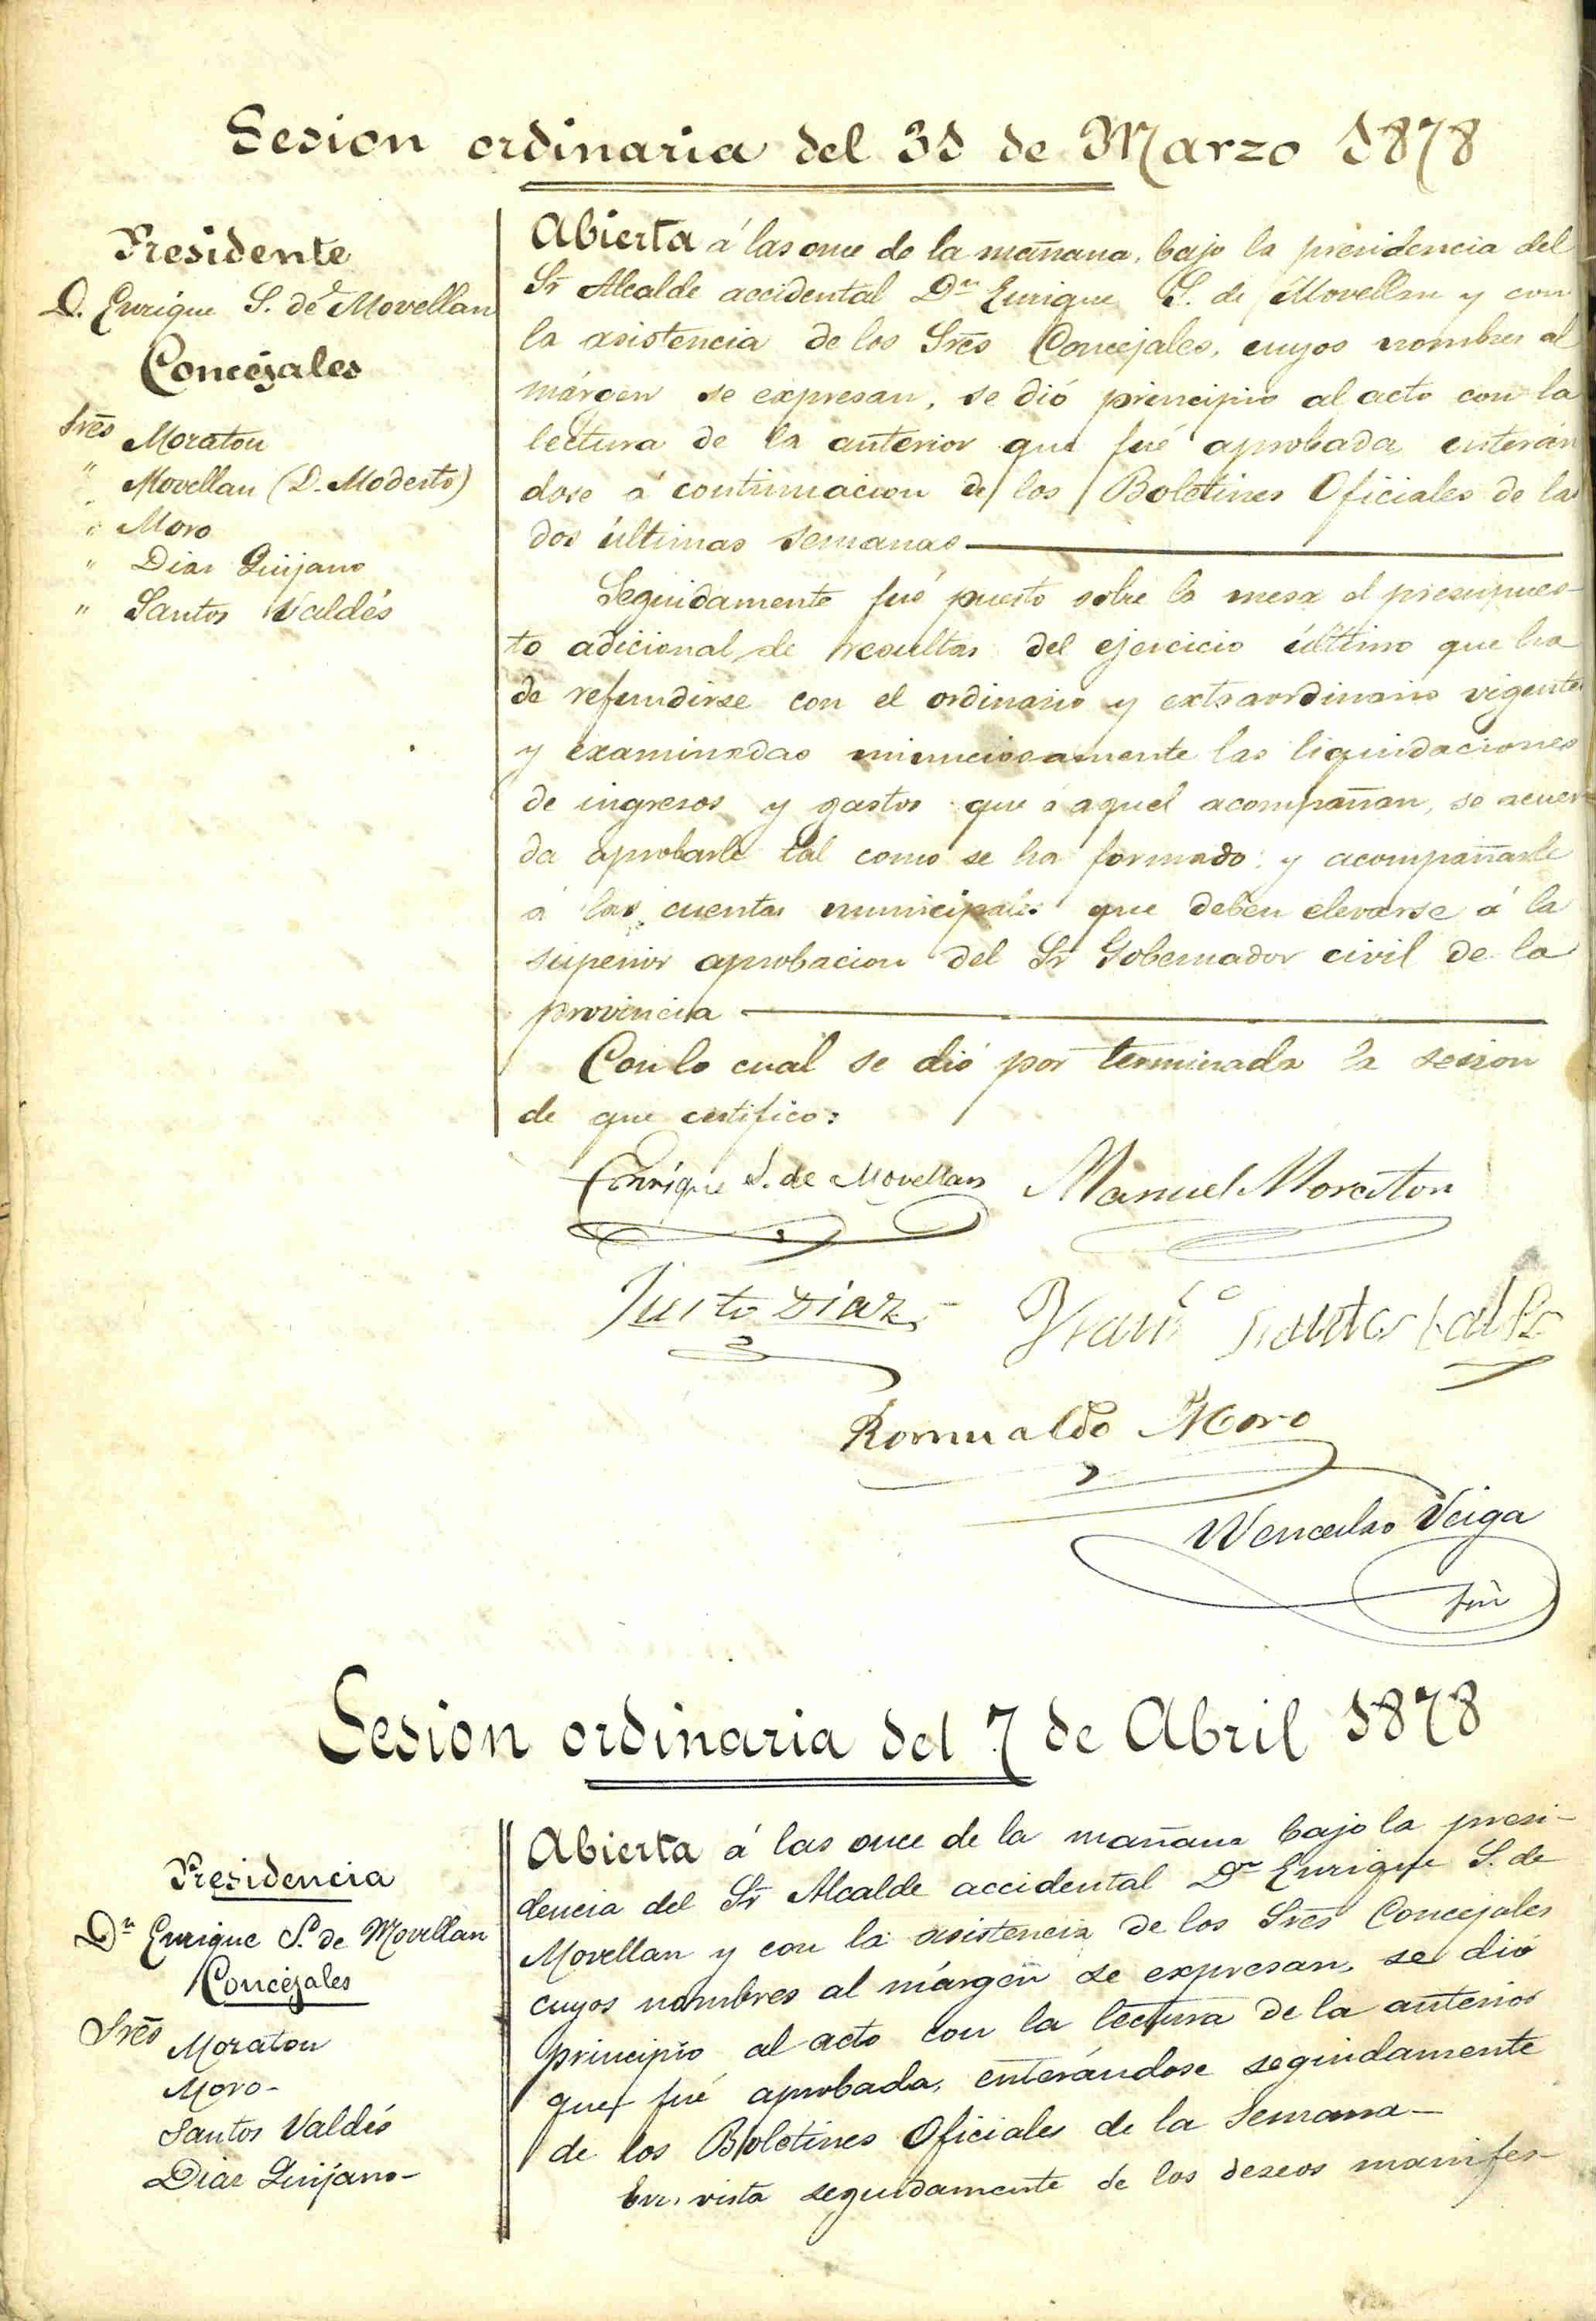 Sesion ordinaria del 31 de Marzo 1878
Presidente
D. Enrique S. de Movellan
Concejales
Sres Moraton
" Movellan (D. Modesto)
" Moro
" Diaz Quijano
" Santos Valdés
Abierta á las once de la mañana, bajo la presidencia del
Sr Alcalde accidental Dn Enrique S. de Movellan y con
la asistencia de los Sres Concejales, cuyos nombres al
márgen se expresan, se dió principio al acto con la
lectura de la anterior que fué aprobada, enterán
dose á continuacion de los Boletines Oficiales de las
dos últimas semanas
Seguidamente fué puesto sobre la mesa el presupues-
to adicional de resultas del ejercicio último que ha
de refundirse con el ordinario y extraordinario vigente
y examinadas minuciosamente las liquidaciones
de ingresos y gastos que á aquel acompañan, se acuer-
da aprobarle tal como se ha formado y acompañarle
á las cuentas municipales que deben elevarse á la
superior aprobacion del Sr Gobernador civil de la
provincia
Con lo cual se dió por terminada la sesion
de que certifico:
Enrique S. de Movellan Manuel Moraton
Justo Diaz Franco Santos Valdes
Romualdo Moro
Wenceslao Veiga
Srio
Sesion ordinaria del 7 de Abril 1878
Presidencia
Dn Enrique S. de Movellan
Concejales
Sres Moraton
Moro-
Santos Valdés
Diaz Quijano-
Abierta á las once de la mañana bajo la presi-
dencia del Sr Alcalde accidental Dn Enrique S. de
Movellan y con la asistencia de los Sres Concejales
cuyos nombres al márgen se expresan, se dió
principio al acto con la lectura de la anterior
que fué aprobada, enterándose seguidamente
de los Boletines Oficiales de la Semana-
En vista seguidamente de los deseos manifes-